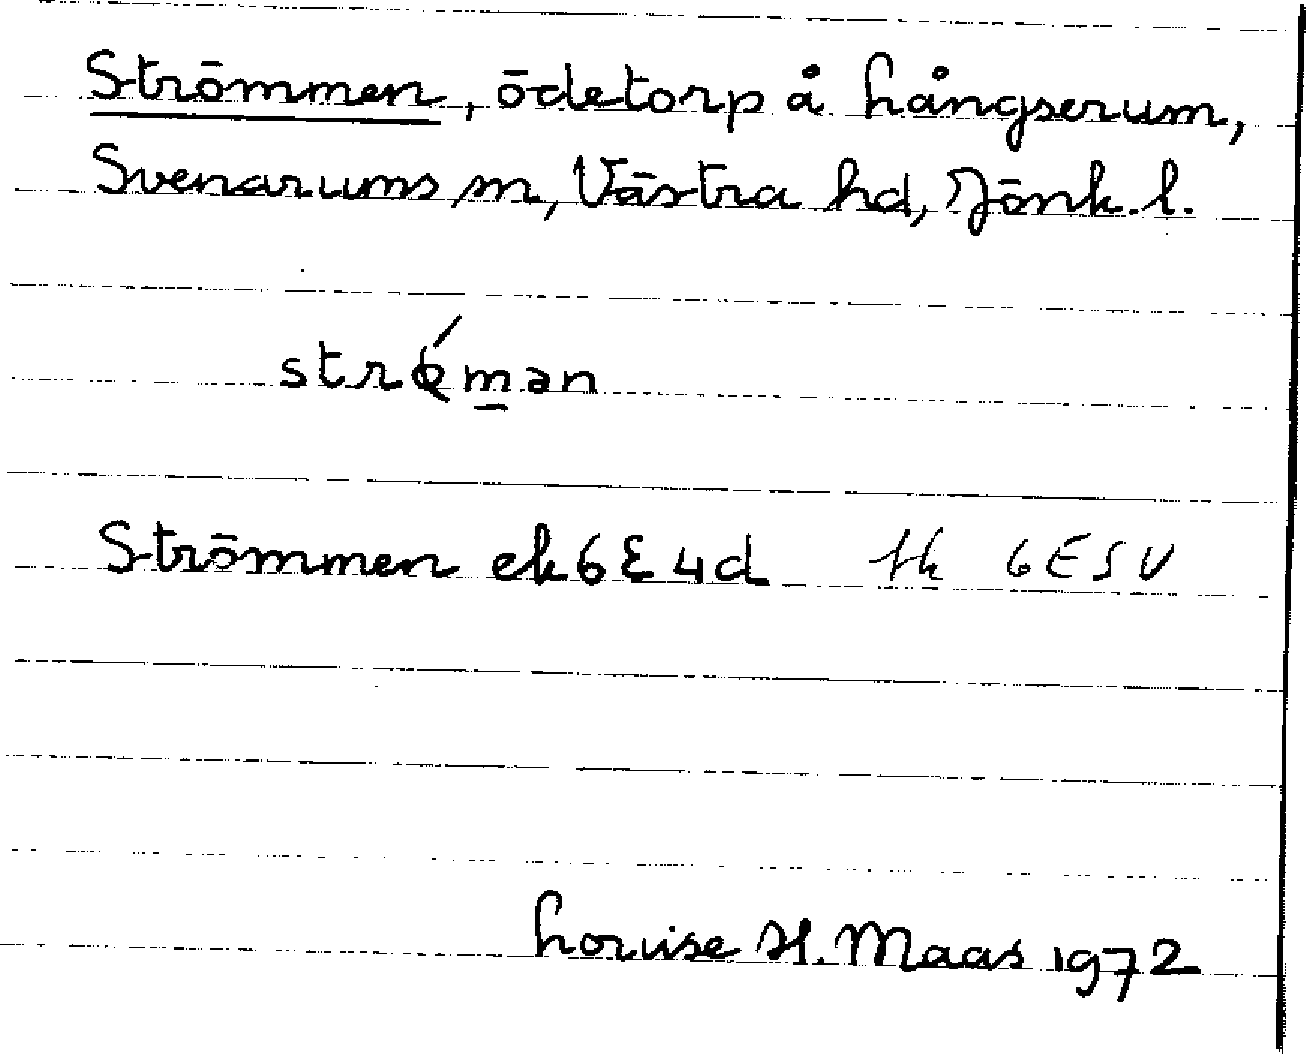 Strömmen, ödetorp å Långserum,
Svenarums sn, Västra hd, Jönk.l.
strǿm̲ən
Strömmen ek 6E4d fk 6E5V
Louise H. Maas 1972